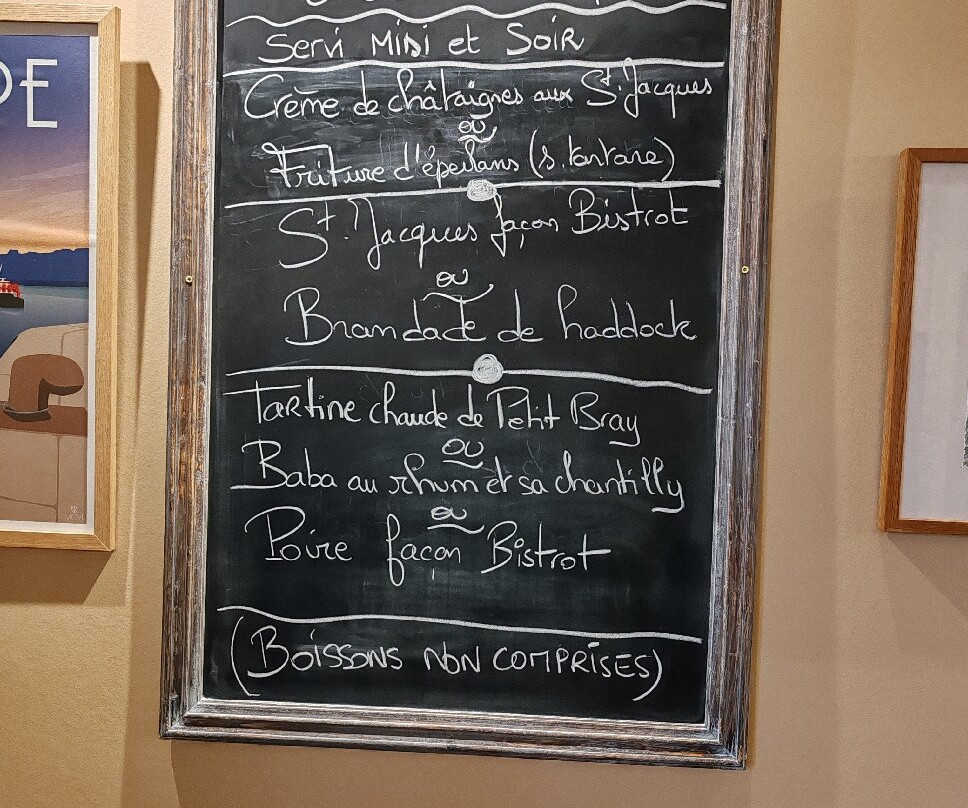 Servi Midi et Soir
Crème de châtaignes aux St. Jacques
ou
Friture d'épelans (s. tartare)
St. Jacques façon Bistrot
ou
Brandade de haddock
Tartine chaude de Petit Bray
ou
Baba au rhum et sa chantilly
ou
Poire façon Bistrot
(BOISSONS NON COMPRISES)
PE